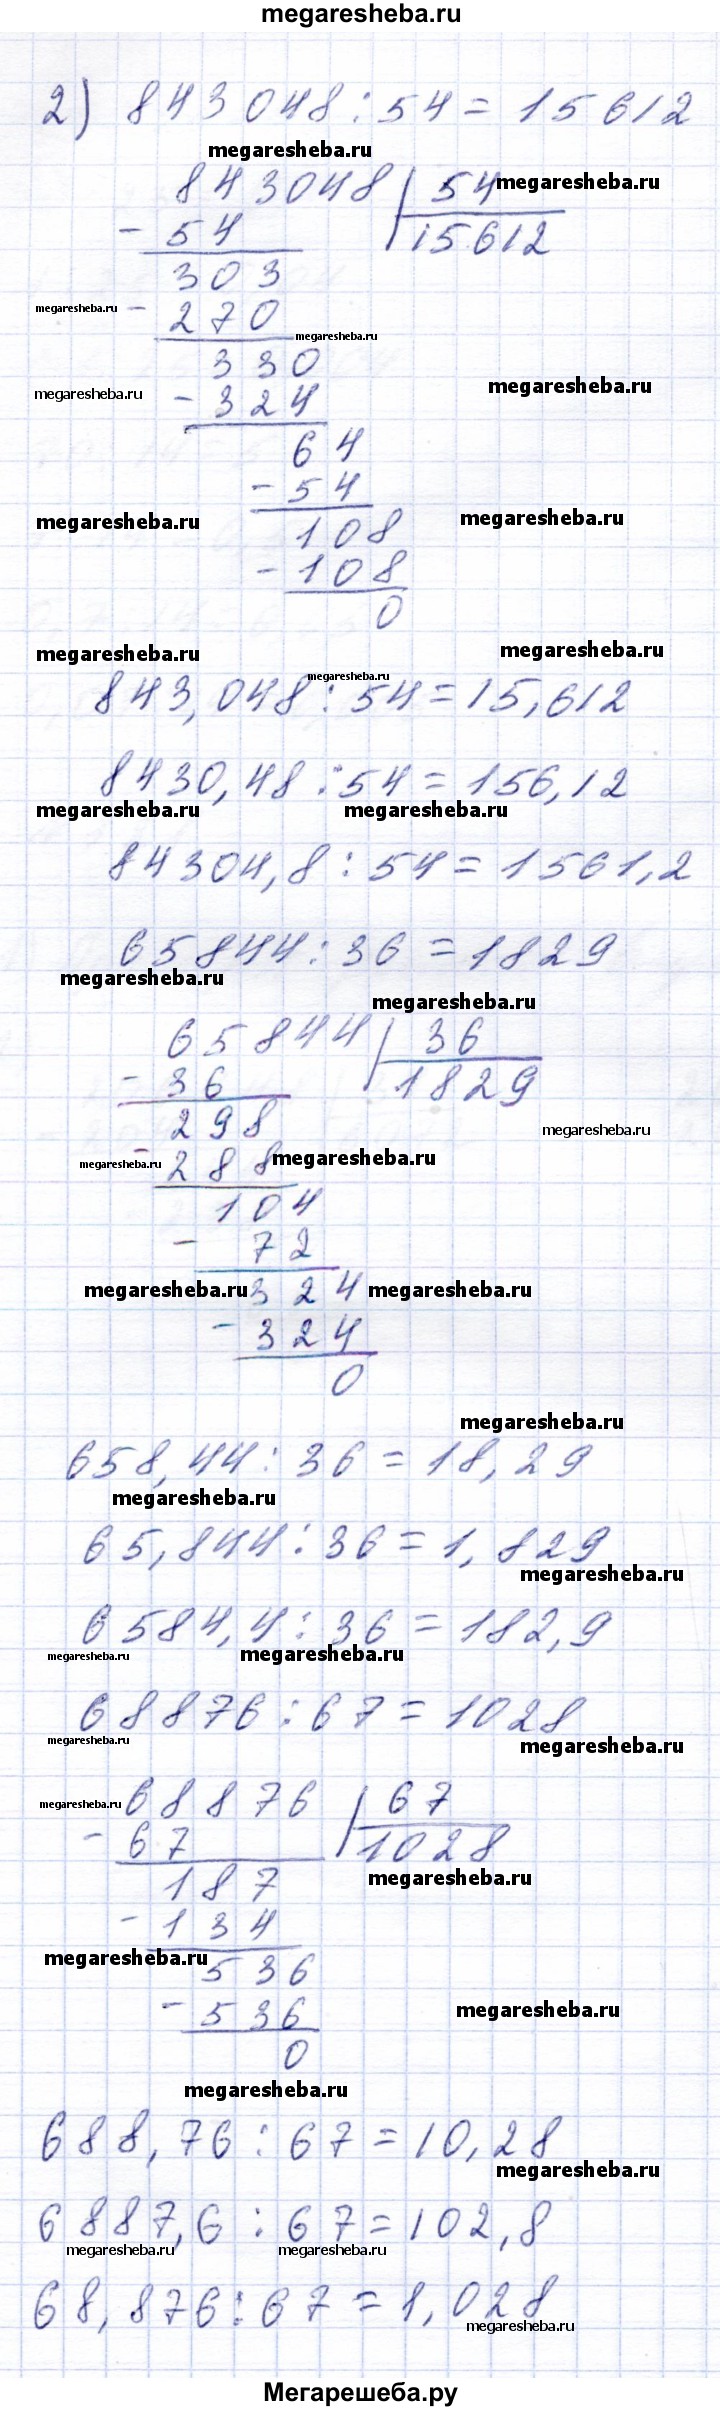 megaresheba.ru
2) 843048 : 54 = 15612
megaresheba.ru
843048 | 54 megaresheba.ru
- 54 15612
303
megaresheba.ru - 270
megaresheba.ru
330 megaresheba.ru
megaresheba.ru - 324
64
- 54
megaresheba.ru 108 megaresheba.ru
- 108
0
megaresheba.ru megaresheba.ru
megaresheba.ru
843,048 : 54 = 15,612
8430,48 : 54 = 156,12
megaresheba.ru megaresheba.ru
84304,8 : 54 = 1561,2
65844 : 36 = 1829
megaresheba.ru
megaresheba.ru
65844 | 36
- 36 1829
298 megaresheba.ru
megaresheba.ru - 288 megaresheba.ru
104
- 72
megaresheba.ru 324 megaresheba.ru
- 324
0
megaresheba.ru
658,44 : 36 = 18,29
megaresheba.ru
65,844 : 36 = 1,829
megaresheba.ru
6584,4 : 36 = 182,9
megaresheba.ru megaresheba.ru
68876 : 67 = 1028
megaresheba.ru megaresheba.ru
megaresheba.ru 68876 | 67
- 67 1028
187 megaresheba.ru
- 134
megaresheba.ru 536
- 536 megaresheba.ru
0
megaresheba.ru
688,76 : 67 = 10,28
megaresheba.ru
6887,6 : 67 = 102,8
megaresheba.ru megaresheba.ru
68,876 : 67 = 1,028
megaresheba.ru
Мегарешеба.ру